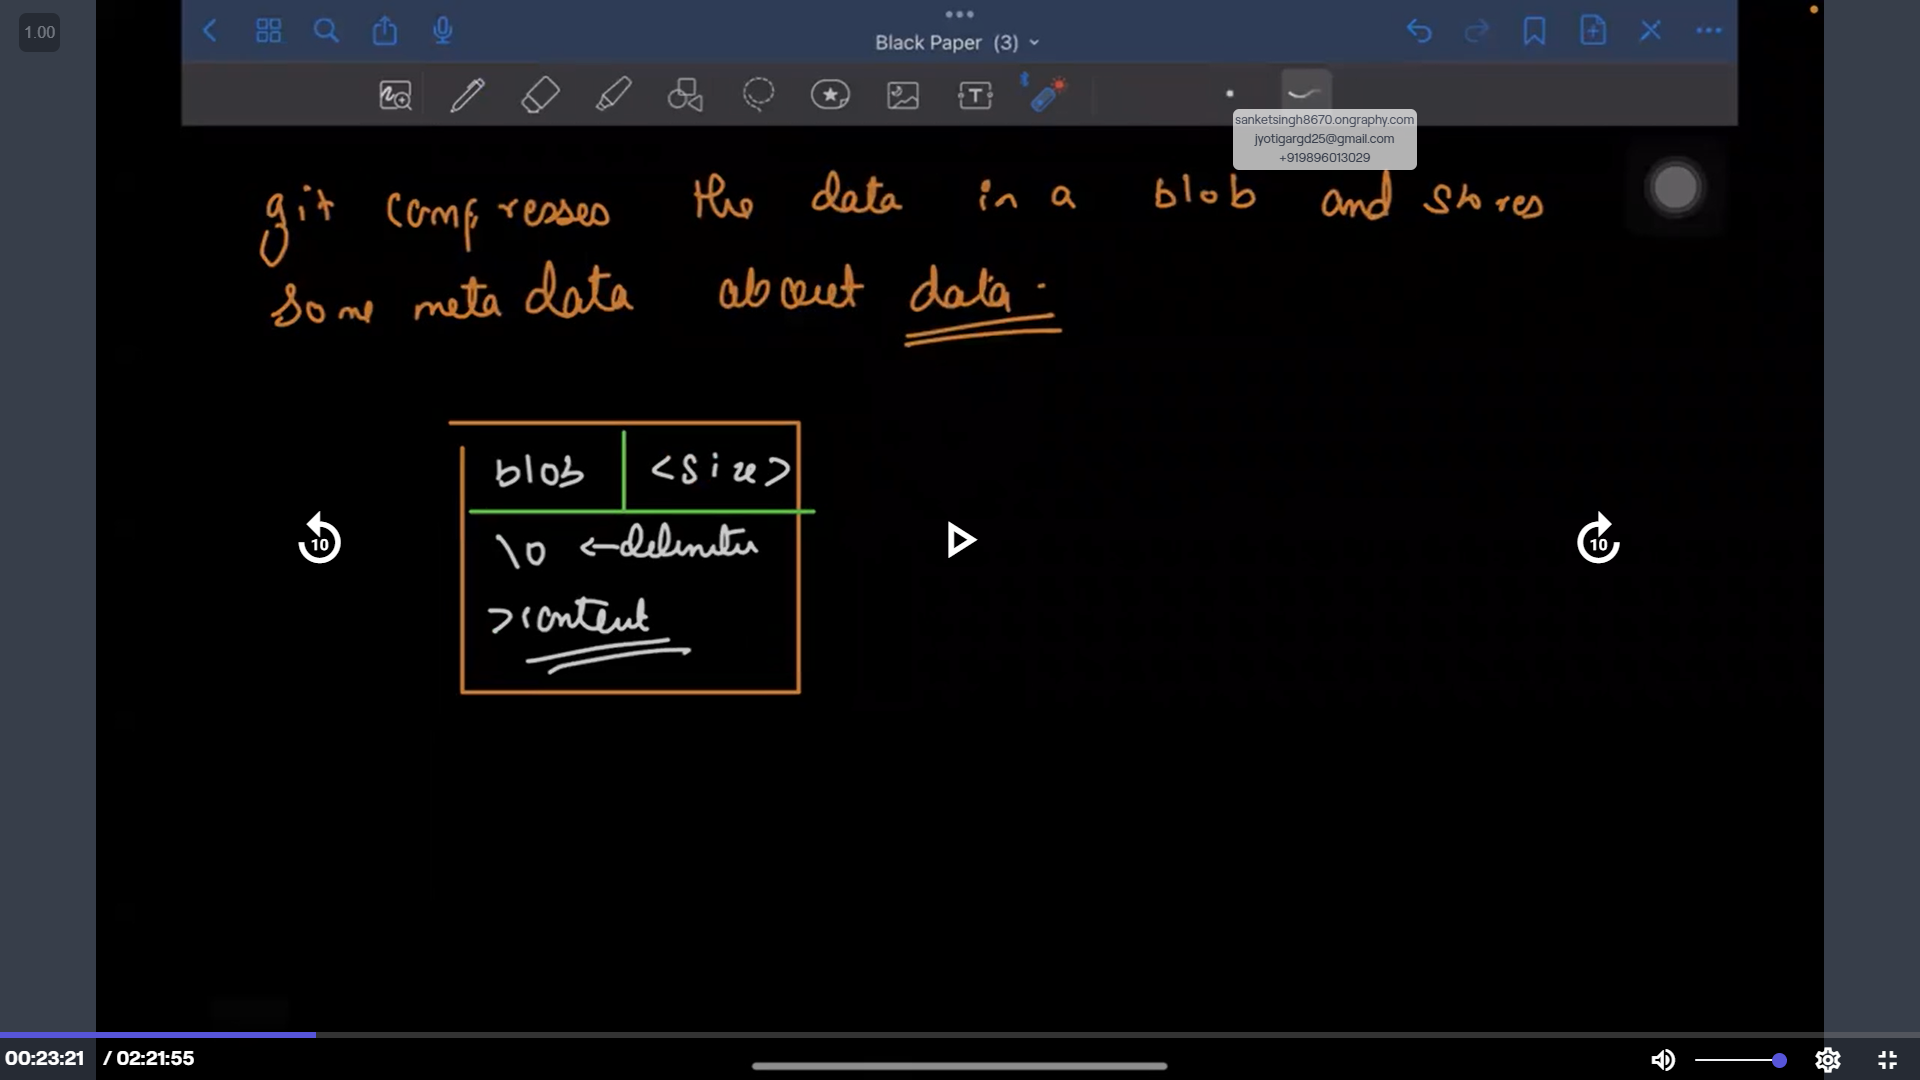 1.00
Black Paper (3)
T
sanketsingh8670.ongraphy.com
jyotigargd25@gmail.com
+919896013029
git compresses the data in a blob and stores
some meta data about data.
blob <size>
\0 ←delimiter
>content
10
10
00:23:21 / 02:21:55